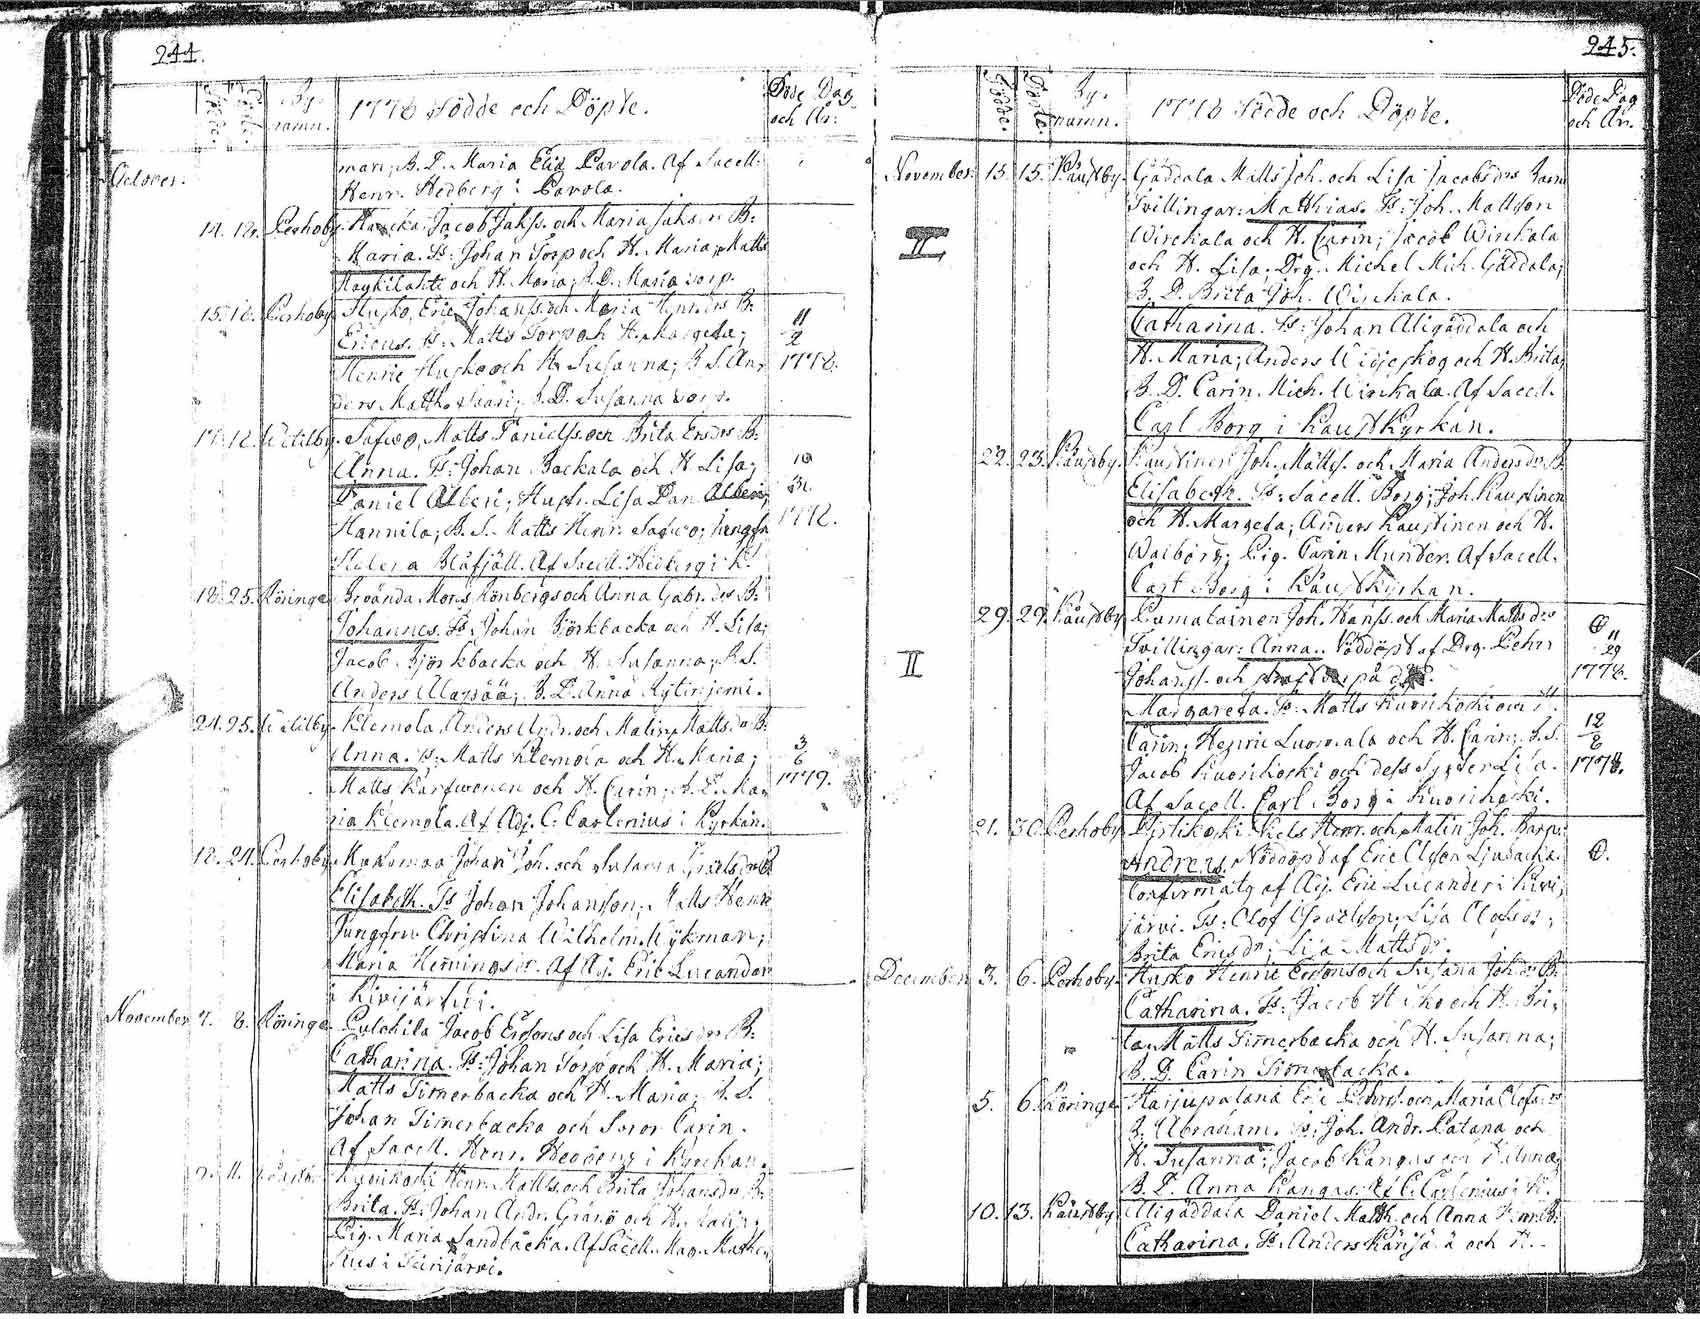 244.
Födde.
Döpte.
By-
namn.
1778 Födde och Döpte.
Döde Dag
och År.
October.
man; B. D. Maria Elia Pavola. Af Sacell.
Henr. Hedberg i Pavola.
14. 18. Perhoby. Jacob Jakss. och Maria Jaks. B:
Maria. Ts: Johan Torp och H. Maria; Matts
Haykilahti och H. Maria; B. D. Maria Torp.
15. 18. Perhoby. Husko, Eric Johanss. och Maria Henr. drs B:
Ericus. Ts: Matts Torp och H. Margeta;
Henric Husko och H. Susanna; B. S. An-
ders Matth. B. D. Susanna Torp.
11
2
1778.
17. 18. Wetilby. Safwo, Matts Danielss. och Brita Ersdrs B:
Anna. Ts: Johan Backala och H. Lisa;
Daniel Alberi; Hustr. Lisa Dan. Alberi,
Hannila; B. S. Matts Henr. Safwo; Jungfr.
Helena Blåfjäll. Af Sacell. Hedberg i K.
1778.
18. 25. Röringe. Broända Mons Rönbergs och Anna Gabr. drs B:
Johannes. Ts: Johan Björkbacka och H. Lisa;
Jacob Björkbacka och H. Susanna; B. S.
Anders B. D. Anna
24. 25. Wetilby. Klemola Anders Andr. och Malin Mattsdrs B:
Anna. Ts: Matts Klemola och H. Maria;
Matts Karfwonen och H. Carin; B. D. Ma-
ria Klemola. Af Adj. C. Carlenius i Kyrkan.
3
6
1779.
18. 24. Perhoby. Johan Joh. och Susanna
Elisabeth. Ts: Johan Johansson; Matts Henr.
Jungfru Christina Wilhelm. Nykman;
Maria Hemingsdr. Af Aj. Eric Lucander
i Kivijärfvi.
November 7. 8. Röringe. Pulckila Jacob Erssons och Lisa Ericsdrs B:
Catharina. Ts: Johan Torp och H. Maria;
Matts Timerbacka och H. Maria; B. S.
Johan Timerbacka och Soror Carin.
Af Sacell. Henr. Hedberg i Kyrckan.
9. 11. Kuorikoski Henr. Mattss. och Brita Johansdrs B:
Brita. Ts: Johan Andr. Granö och H. Malin;
Pig. Maria Sandbacka. Af Sacell. Mag.
i Teirijärvi.
245.
Födde.
Döpte.
By-
namn.
1778 Födde och Döpte.
Döde Dag
och År.
November. 15. 15. Kaustby. Gäddala Matts Joh. och Lisa Jacobsdrs Barn
Tvillingar: Matthias. Ts: Joh. Mattsson
Wirckala och H. Carin; Jacob Wirckala
och H. Lisa. Drg. Michel Mich. Gäddala;
B. D. Brita Joh. Wirckala.
II
Catharina. Ts: Johan Aligäddala och
H. Maria; Anders Widjeskog och H. Brita;
B. D. Carin Mich. Wirckala. Af Sacell.
Carl Borg i Kaustkyrkan.
22. 23. Kaustby. Kaustinen Joh. Mattss. och Maria Andersdrs B.
Elisabeth. Ts: Sacell. Borg; Joh. Kaustinen
och H. Margeta; Anders Kaustinen och H.
Walborg; Pig. Carin Munter. Af Sacell.
Carl Borg i Kaustkyrkan.
29. 29. Kaustby. Pumalainen Joh. Hanss. och Maria Mattsdrs
Tvillingar: Anna. Nöddöpt af Drg. Pehr
Johanss. och
11
29
1778.
II
Margareta. Ts: Matts Kuorikoski och H.
Carin; Henric Luomala och H. Carin; B. S.
Jacob Kuorikoski och dess Syster Lisa.
Af Sacell. Carl Borg i Kuorikoski.
12
1778.
21. 30. Perhoby. Nels Henr. och Malin Joh. Barn:
Andreas. Nöddöpt af Eric Olsson
Confirmatq af Aj. Eric Lucander i Kivi-
järvi. Ts: Olof Lisa Olofsdr;
Brita Ericsdr; Lisa Mattsdr.
December 3. 6. Perhoby. Husko Henric Erssons och Susana Joh. drs B:
Catharina. Ts: Jacob Husko och H. Bri-
ta; Matts Timerbacka och H. Susanna;
B. D. Carin Timerbacka.
5. 6. Röringe. Harjupatana Eric Pehrss. och Maria Olofsdrs
B: Abraham. Ts: Joh. Andr. Patana och
H. Susanna; Jacob Kangas och
B. D. Anna Kangas. Af C. Carlenius i K.
10. 13. Kaustby. Aligäddala Daniel Matth. och Anna Henr. B:
Catharina. Ts: Anders och H.